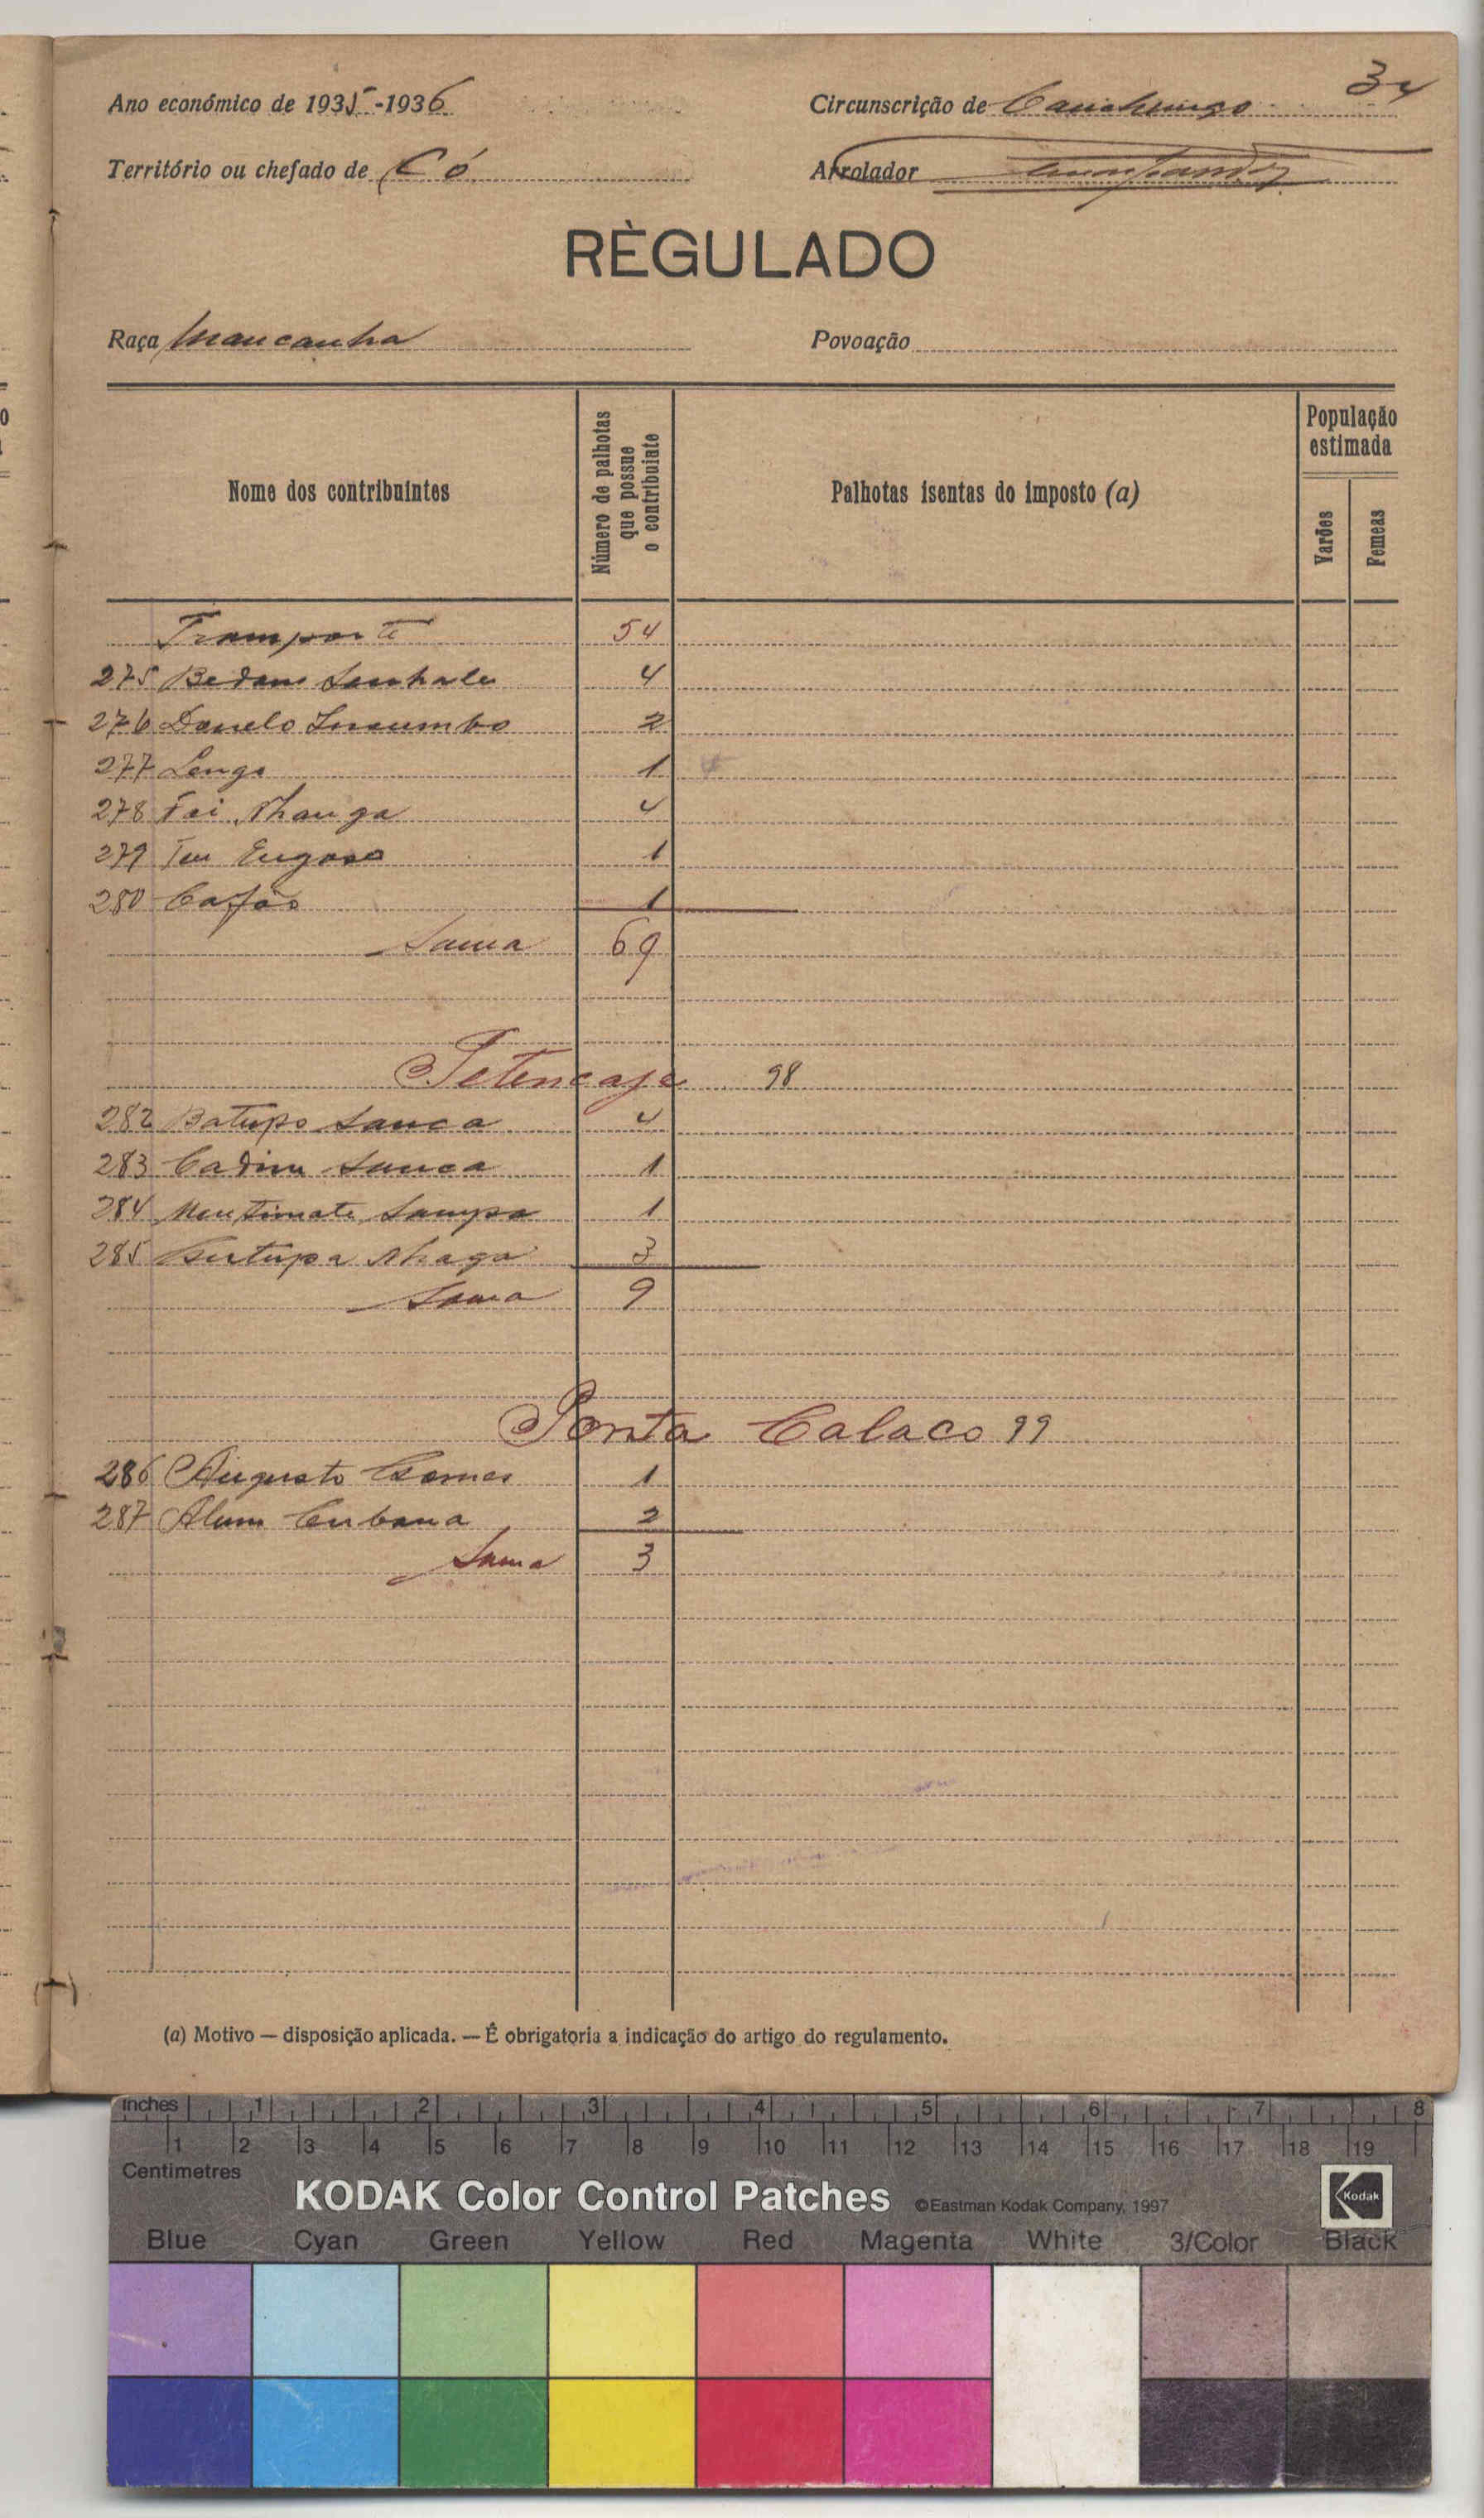 34
Ano económico de 1935-1936
Circunscrição de Canchungo
Território ou chefado de Có
Arrolador
RÈGULADO
Raça Mancanha
Povoação
Nome dos contribuintes
Número de palhotas que possue o contribuiate
Palhotas isentas do imposto (a)
População estimada
Varões
Femeas
Transporte 54
275 4
276 Danelo 2
277 Lenga 1
278 Fai Nhanga 4
279 1
280 Cafás 1
Soma 69
Petencaje 98
282 Batupo Sanca 4
283 Cadim Sanca 1
284 Sampa 1
285 Nhaga 3
Soma 9
Ponta Calaco 99
286 Augusto Gomes 1
287 Alum Cubana 2
Soma 3
(a) Motivo — disposição aplicada. — É obrigatoria a indicação do artigo do regulamento.
inches 1 2 3 4 5 6 7 8
1 2 3 4 5 6 7 8 9 10 11 12 13 14 15 16 17 18 19
Centimetres
KODAK Color Control Patches ©Eastman Kodak Company, 1997 Kodak
Blue Cyan Green Yellow Red Magenta White 3/Color Black